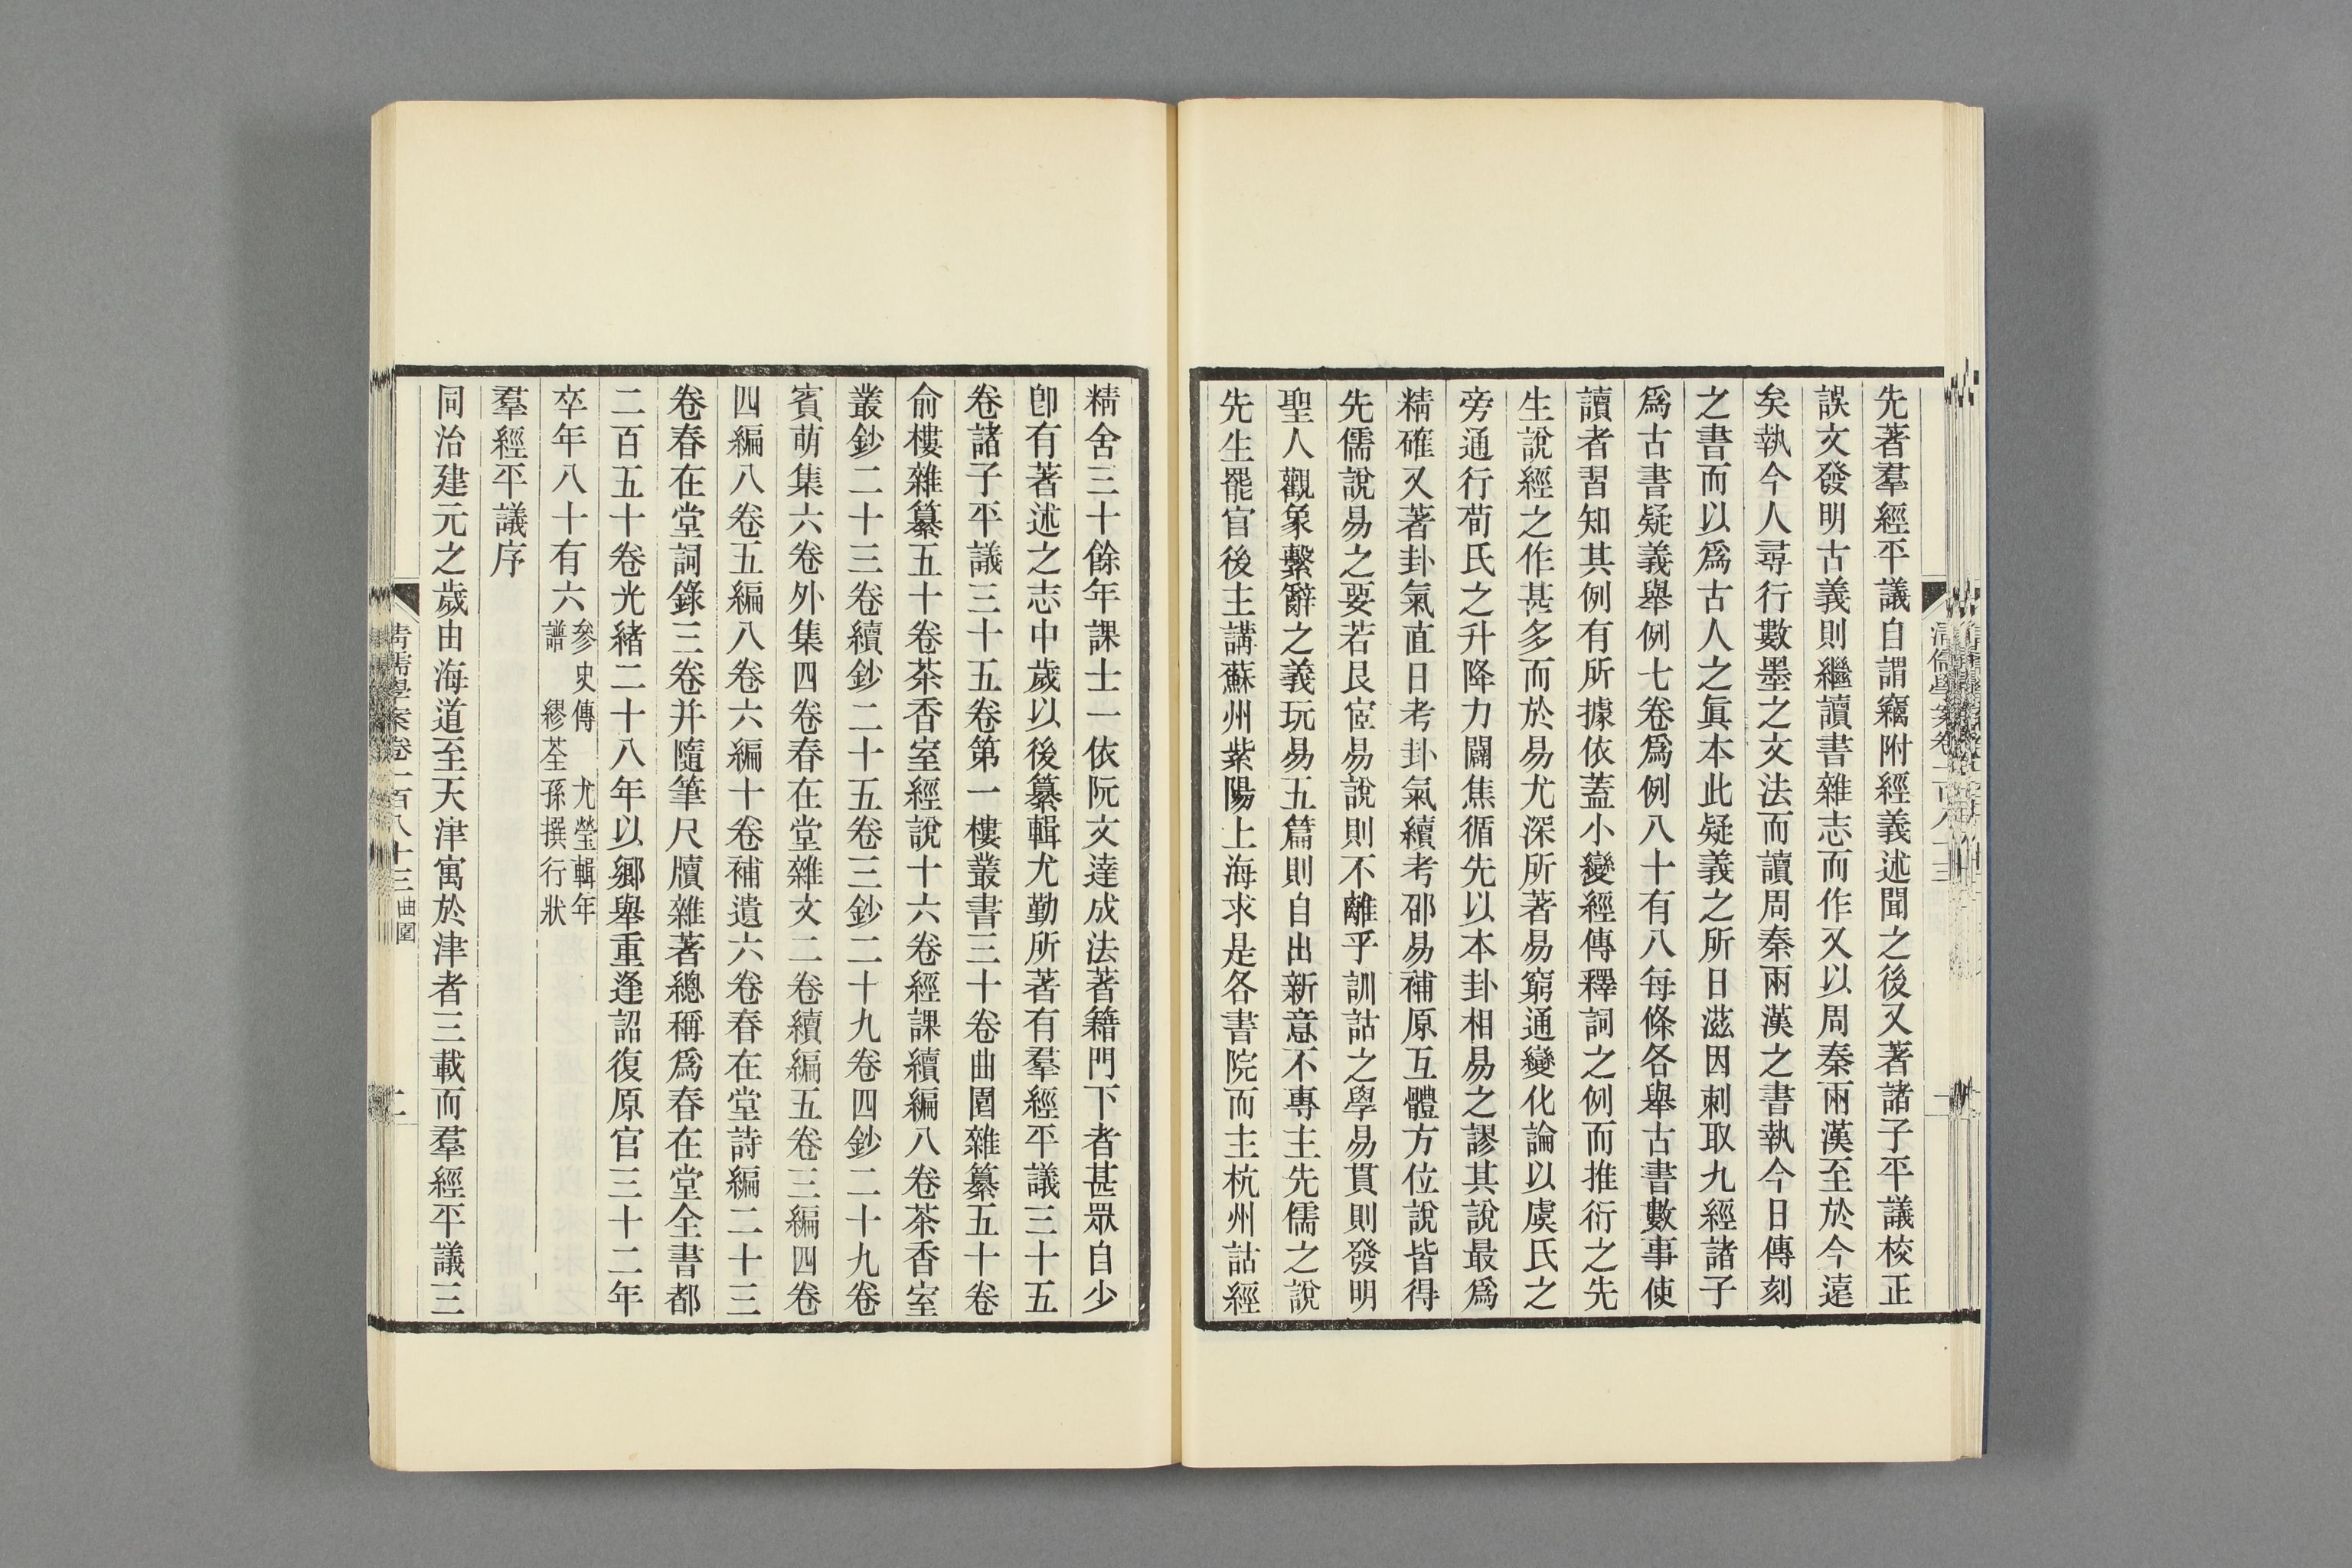 先著羣經平議自謂竊附經義述聞之後又著諸子平議校正
誤文發明古義則繼讀書雜志而作又以周秦兩漢至於今遠
矣執今人尋行數墨之文法而讀周秦兩漢之書執今日傳刻
之書而以爲古人之眞本此疑義之所日滋因刺取九經諸子
爲古書疑義舉例七卷爲例八十有八每條各舉古書數事使
讀者習知其例有所據依蓋小變經傳釋詞之例而推衍之先
生說經之作甚多而於易尤深所著易窮通變化論以虞氏之
旁通行荀氏之升降力闢焦循先以本卦相易之謬其說最爲
精確又著卦氣直日考卦氣續考邵易補原互體方位說皆得
先儒說易之要若艮宧易說則不離乎訓詁之學易貫則發明
聖人觀象繫辭之義玩易五篇則自出新意不專主先儒之說
先生罷官後主講蘇州紫陽上海求是各書院而主杭州詁經
精舍三十餘年課士一依阮文達成法著籍門下者甚眾自少
卽有著述之志中歲以後纂輯尤勤所著有羣經平議三十五
卷諸子平議三十五卷第一樓叢書三十卷曲園雜纂五十卷
俞樓雜纂五十卷茶香室經說十六卷經課續編八卷茶香室
叢鈔二十三卷續鈔二十五卷三鈔二十九卷四鈔二十九卷
賓萌集六卷外集四卷春在堂雜文二卷續編五卷三編四卷
四編八卷五編八卷六編十卷補遺六卷春在堂詩編二十三
卷春在堂詞錄三卷并隨筆尺牘雜著總稱爲春在堂全書都
二百五十卷光緒二十八年以鄉舉重逢詔復原官三十二年
卒年八十有六參史傳 尤瑩輯年
譜 繆荃孫撰行狀
羣經平議序
同治建元之歲由海道至天津寓於津者三載而羣經平議三
清儒學案卷一百八十三 曲園 二